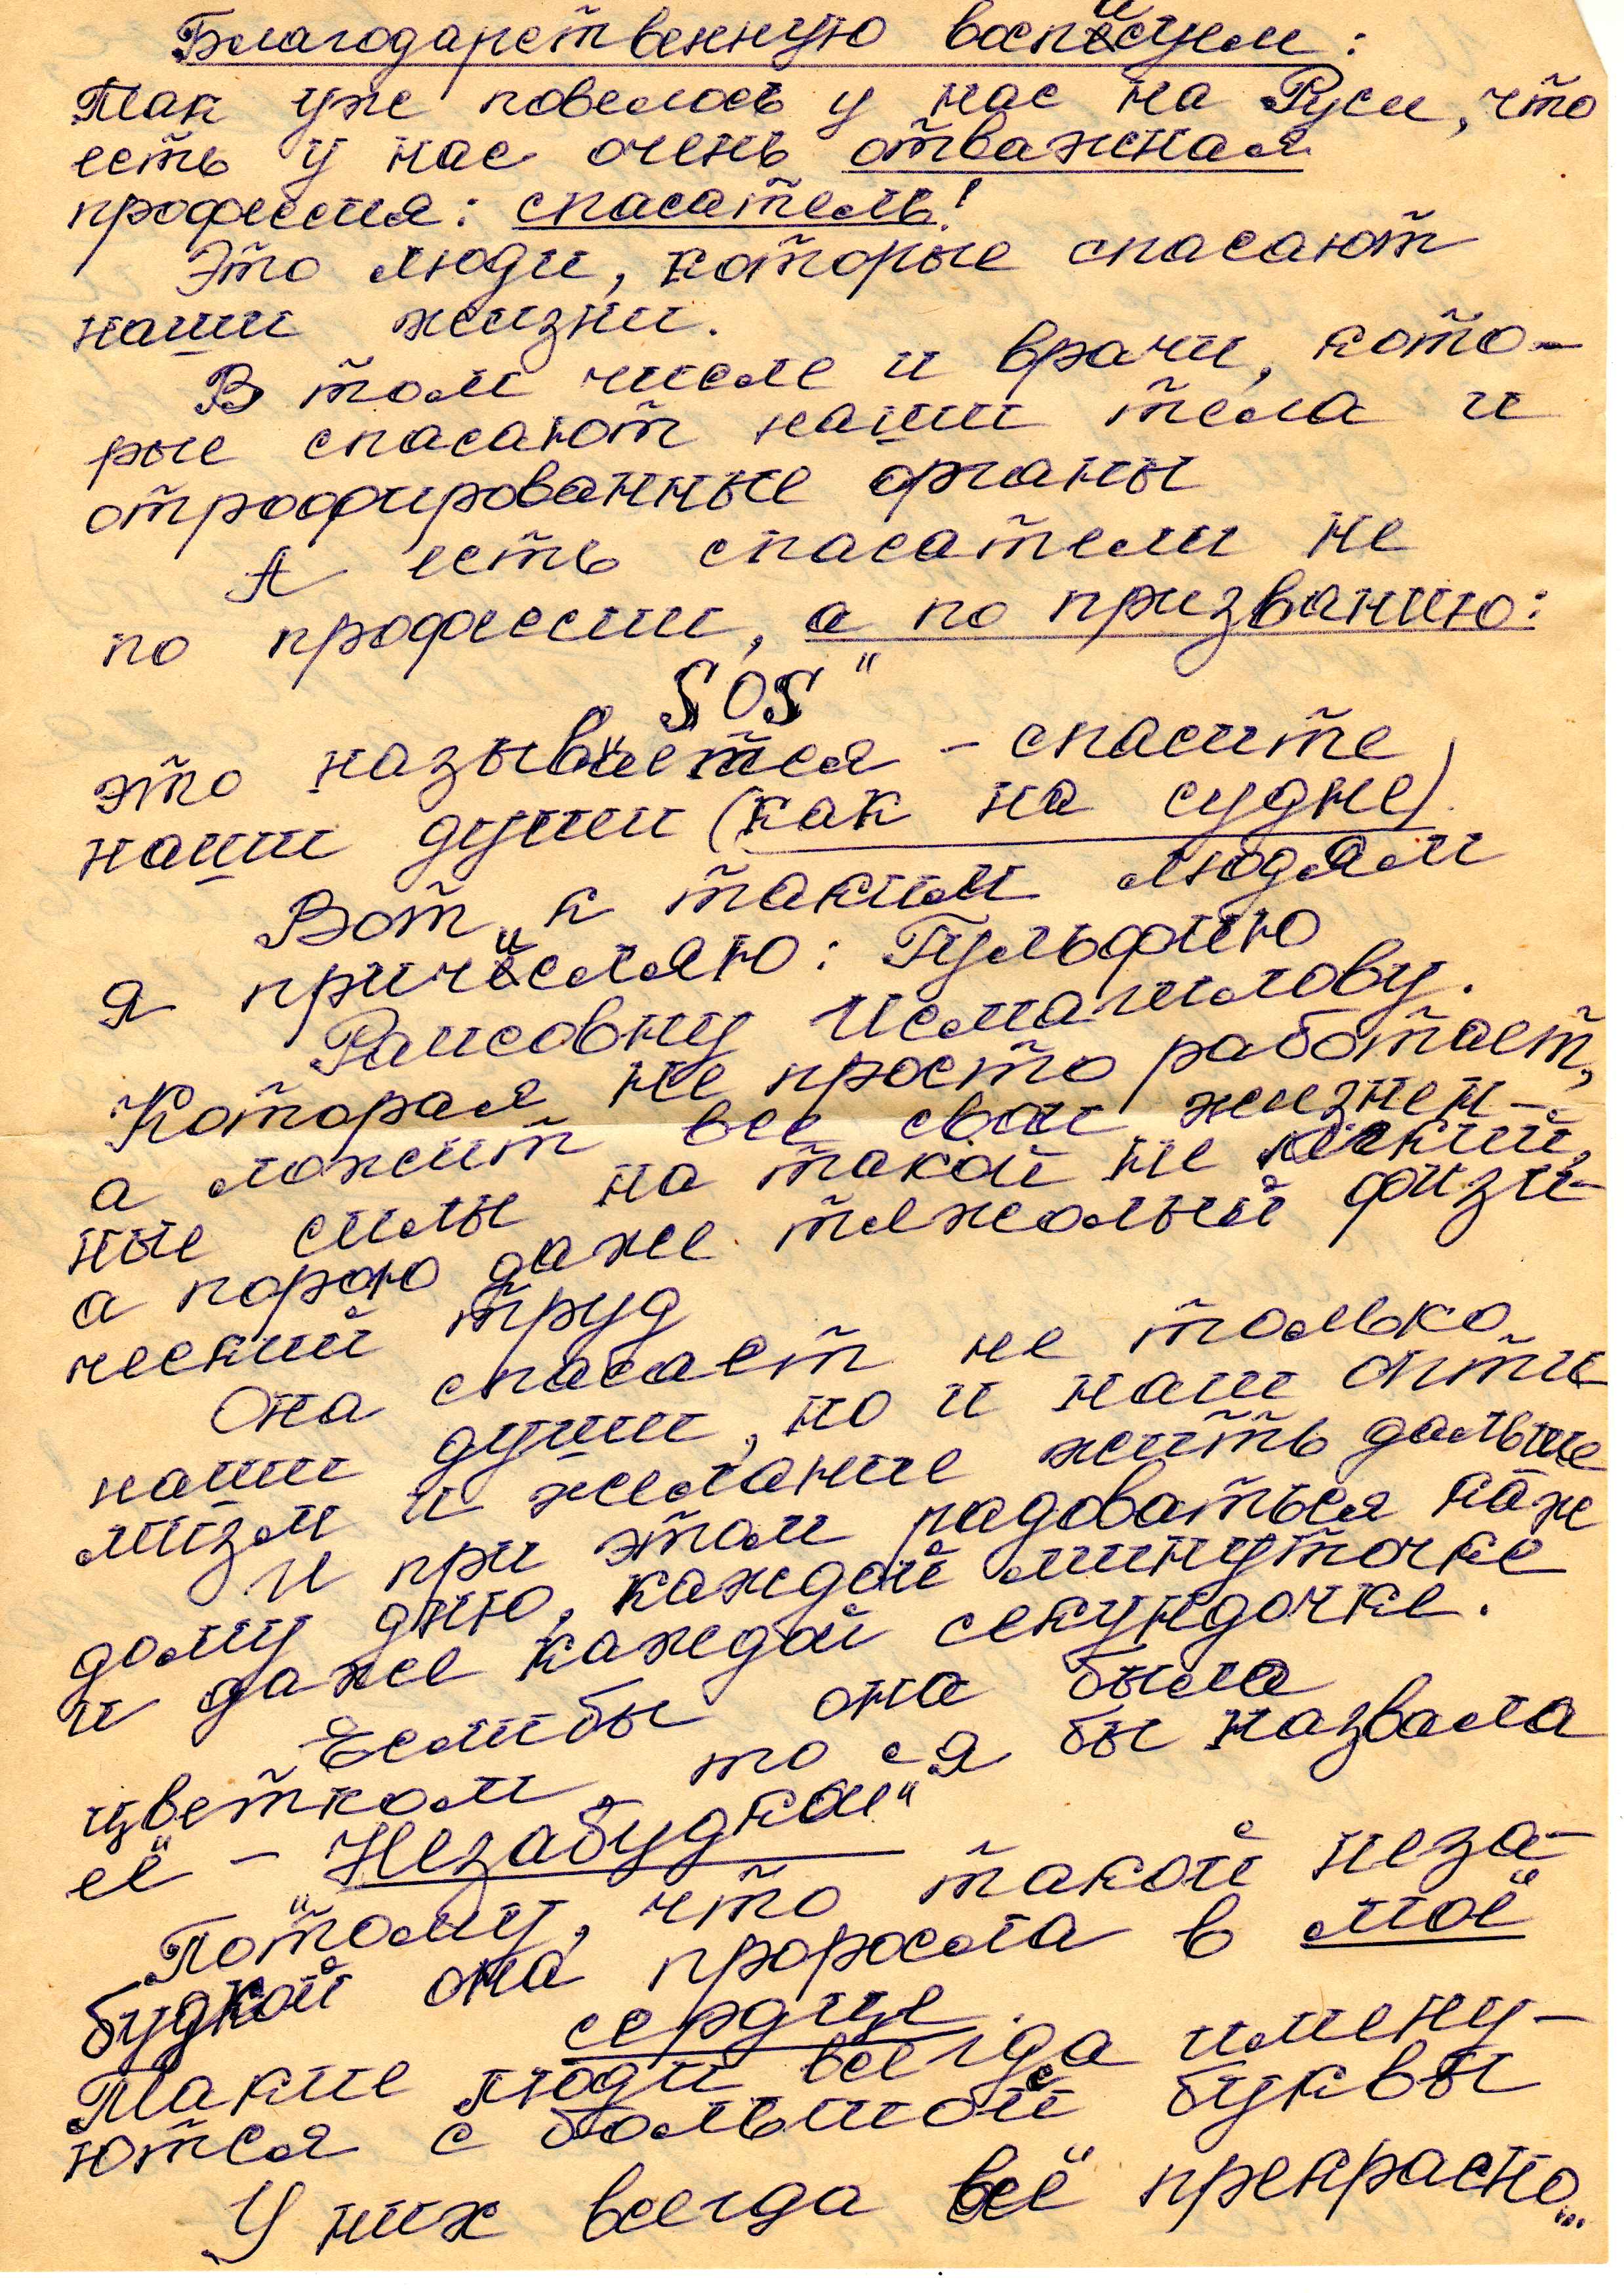 Благодарственную восписуем:
Так уже повелось у нас на Руси, что
есть у нас очень отважная
профессия: спасатель!
Это люди, которые спасают
наши жизни.
В том числе и врачи, кото-
рые спасают наши тела и
отрофированные органы
А есть спасатели не
по профессии, а по призванию:
"SOS"
это называется - спасите
наши души (как на судне)
Вот, к таким людям
я причисляю: Гульфию
Раисовну Исмагилову.
Которая не просто работает,
а ложит все свои жизнен-
ные силы на такой не легкий,
а порою даже тяжолый физи-
ческий труд
Она спасает не только
наши души, но и наш опти
мизм и желание жить дальше
И при этом радоваться каж
дому дню, каждой минуточке
и даже каждой секундочке.
Еслибы она была
цветком, то я бы назвала
её - "Незабудкой"
Потому, что такой неза-
будкой она проросла в моё
сердце.
Такие люди всегда имену-
ются с большой буквы
У них всегда всё прекрасно...